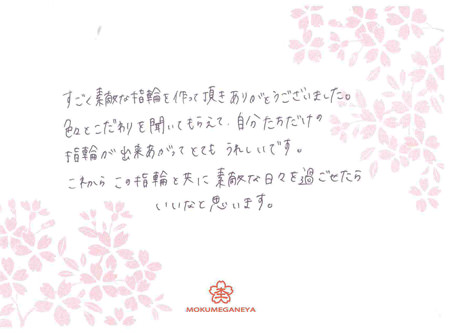 すごく素敵な指輪を作って頂きありがとうございました。
色々とこだわりを聞いてもらえて、自分たちだけの
指輪が出来あがってとても うれしいです。
これから この指輪と共に 素敵な日々を過ごせたら
いいなと思います。
MOKUMEGANEYA